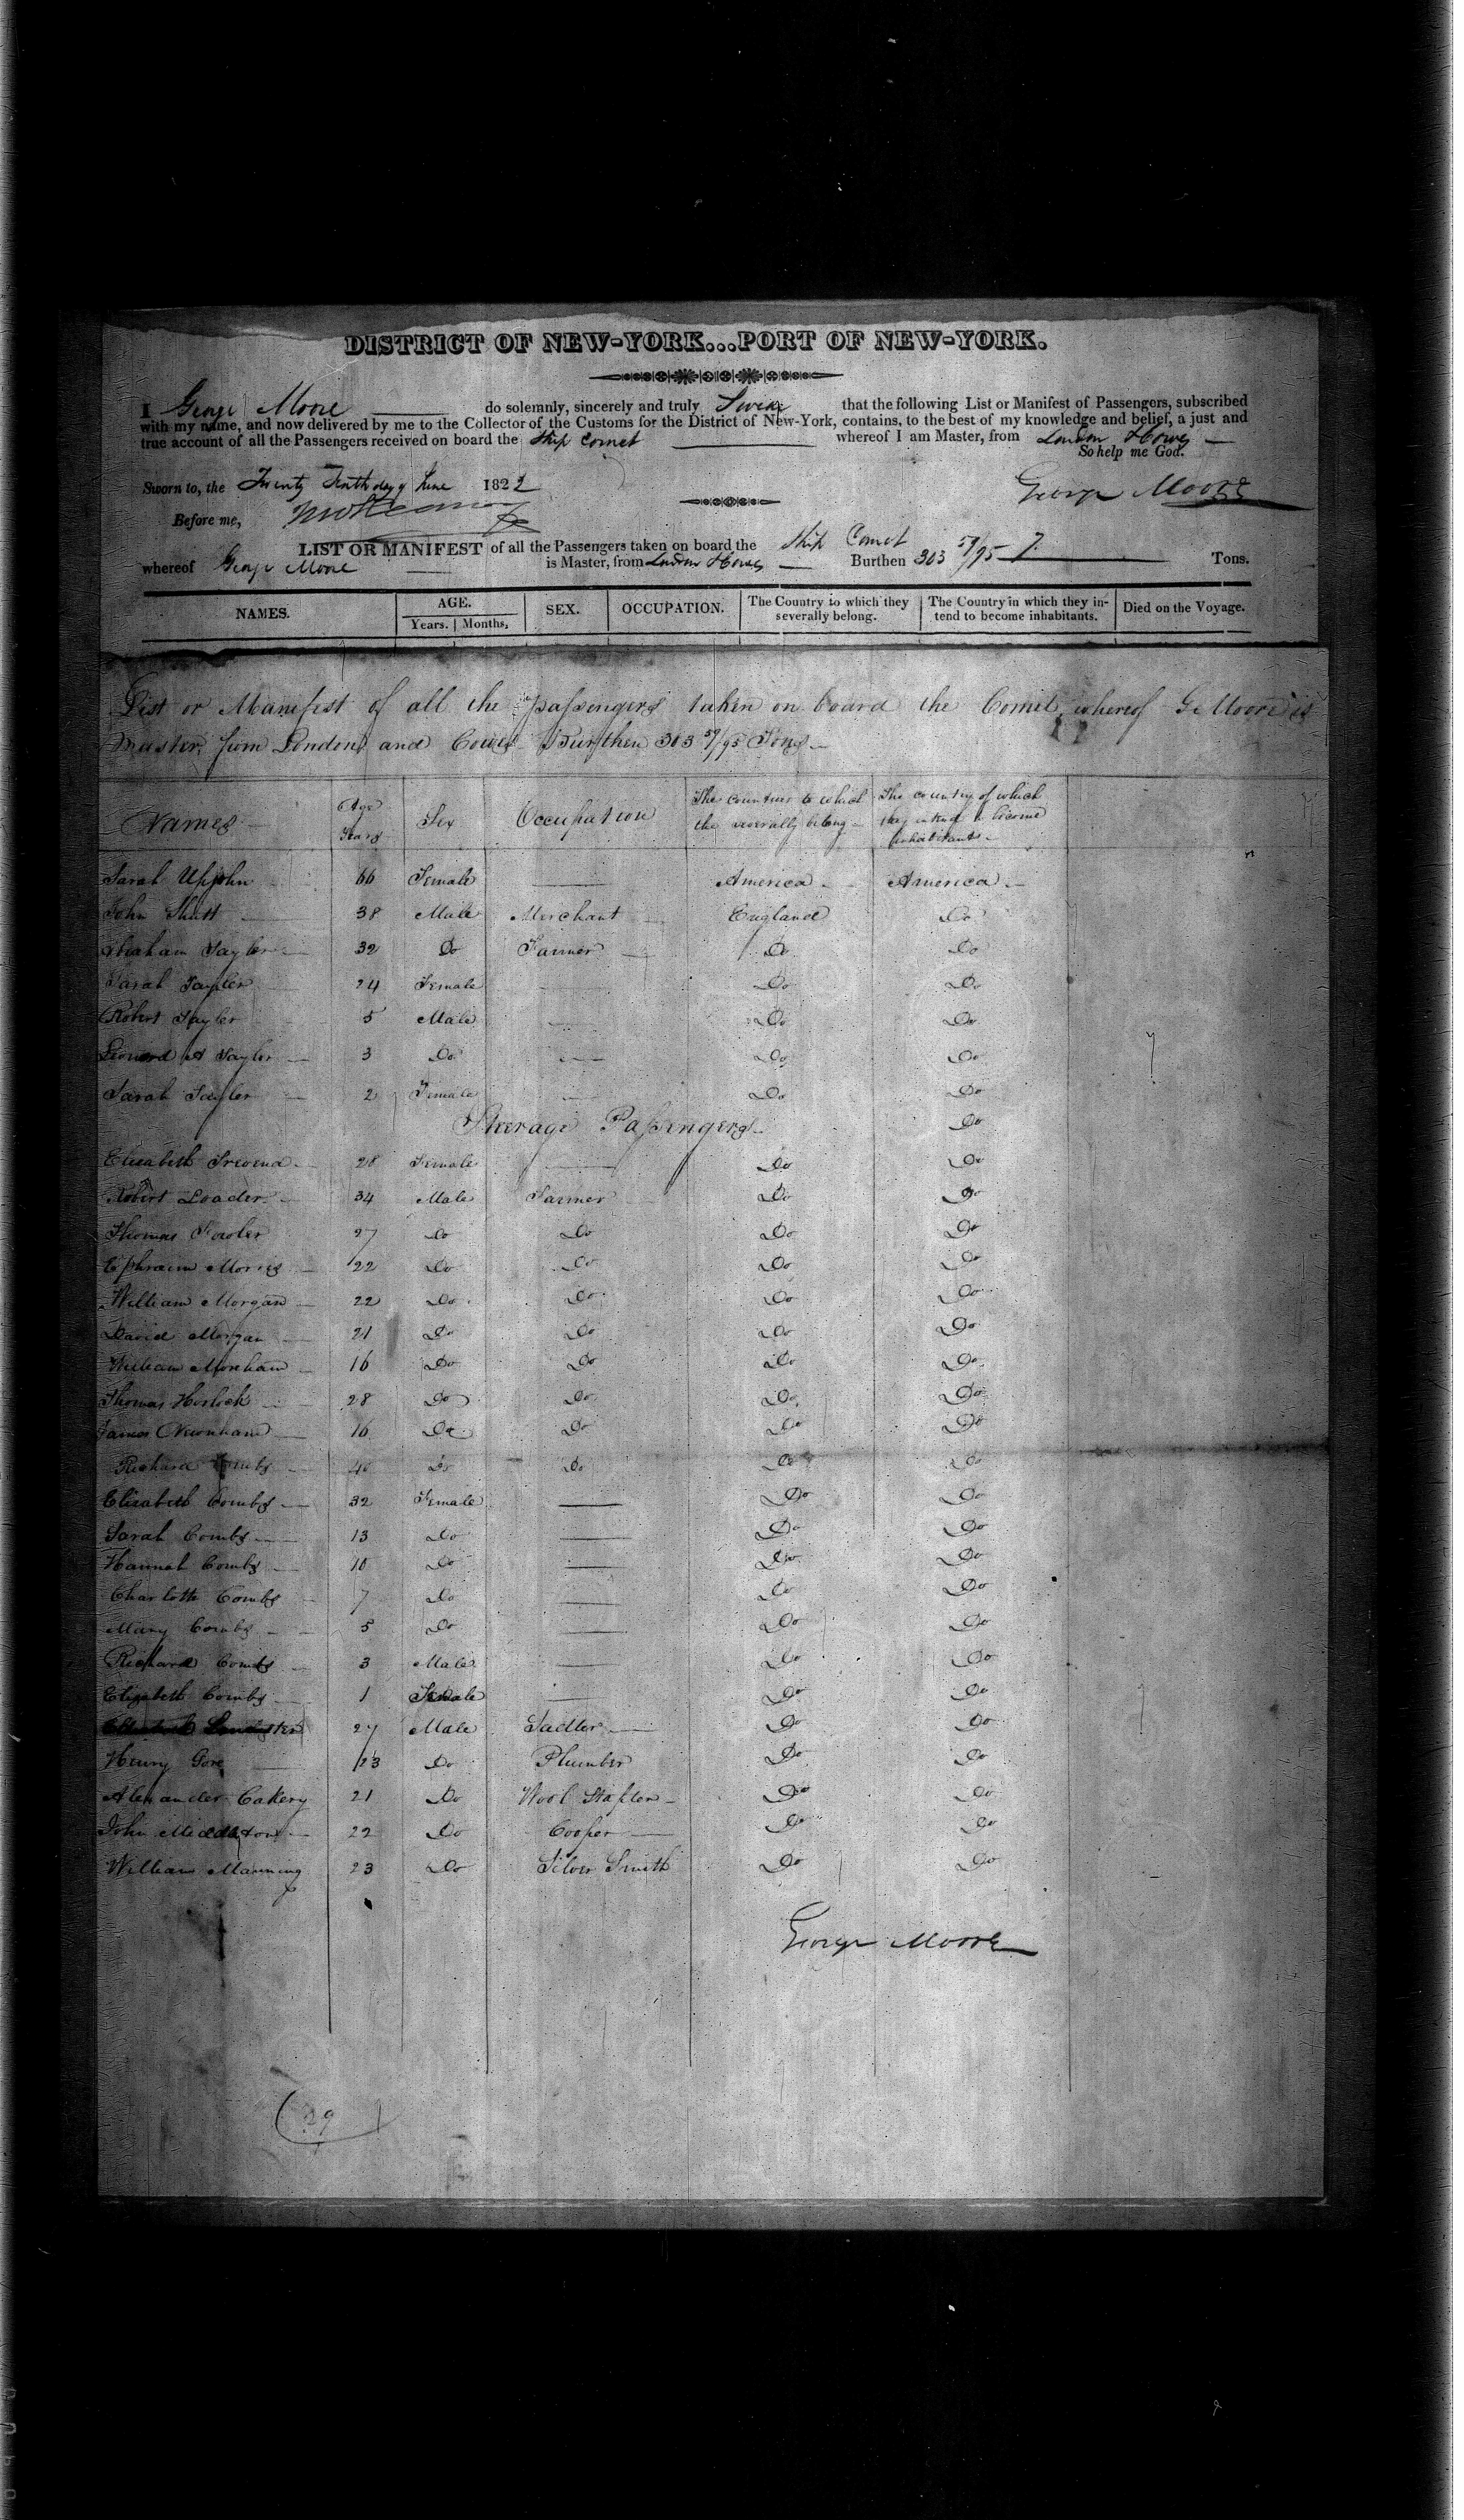 DISTRICT OF NEW-YORK...PORT OF NEW-YORK.
I George Moore do solemnly, sincerely and truly Swear that the following List or Manifest of Passengers, subscribed
with my name, and now delivered by me to the Collector of the Customs for the District of New-York, contains, to the best of my knowledge and belief, a just and
true account of all the Passengers received on board the Ship Comet whereof I am Master, from London & Cowes
So help me God.
Sworn to, the Twenty day of June 1822 George Moore
Before me,
LIST OR MANIFEST of all the Passengers taken on board the Ship Comet
whereof George Moore is Master, from London & Cowes Burthen 303 59/95 Tons.
NAMES. AGE. Years. Months, SEX. OCCUPATION. The Country to which they severally belong. The Country in which they intend to become inhabitants. Died on the Voyage.
List or Manifest of all the passengers taken on board the Comet whereof G Moore is
Master, from London and Cowes Burthen 303 59/95 Tons
Names Age Years Sex Occupation The Countries to which the severally belong The country of which they intend to become inhabitants
Sarah Upjohn 66 Female America America
John Shutt 38 Male Merchant England Do
Abraham Tayler 32 Do Farmer Do Do
Sarah Tayler 24 Female Do Do
Robert Tayler 5 Male Do Do
Leonard A Tayler 3 Do Do Do
Sarah Tayler 2 Female Do Do
Steerage Passengers Do
Elisabeth 28 Female Do Do
Robert Loader 34 Male Farmer Do Do
Thomas Fowler 27 Do Do Do Do
Ephraim Morris 22 Do Do Do Do
William Morgan 22 Do Do Do Do
David Morgan 21 Do Do Do Do
William Moreham 16 Do Do Do Do
Thomas Horlock 28 Do Do Do Do
James Newnham 16 Do Do Do Do
Richard Combs 40 Do Do Do Do
Elisabeth Combs 32 Female Do Do
Sarah Combs 13 Do Do Do
Hannah Combs 10 Do Do Do
Charlotte Combs 7 Do Do Do
Mary Combs 5 Do Do Do
Richard Combs 3 Male Do Do
Elizabeth Combs 1 Female Do Do
27 Male Sadler Do Do
Henry Gore 23 Do Plumber Do Do
Alexander Cakery 21 Do Wool Stapler Do Do
John Middleton 22 Do Cooper Do Do
William Manning 23 Do Silver Smith Do Do
George Moore
29